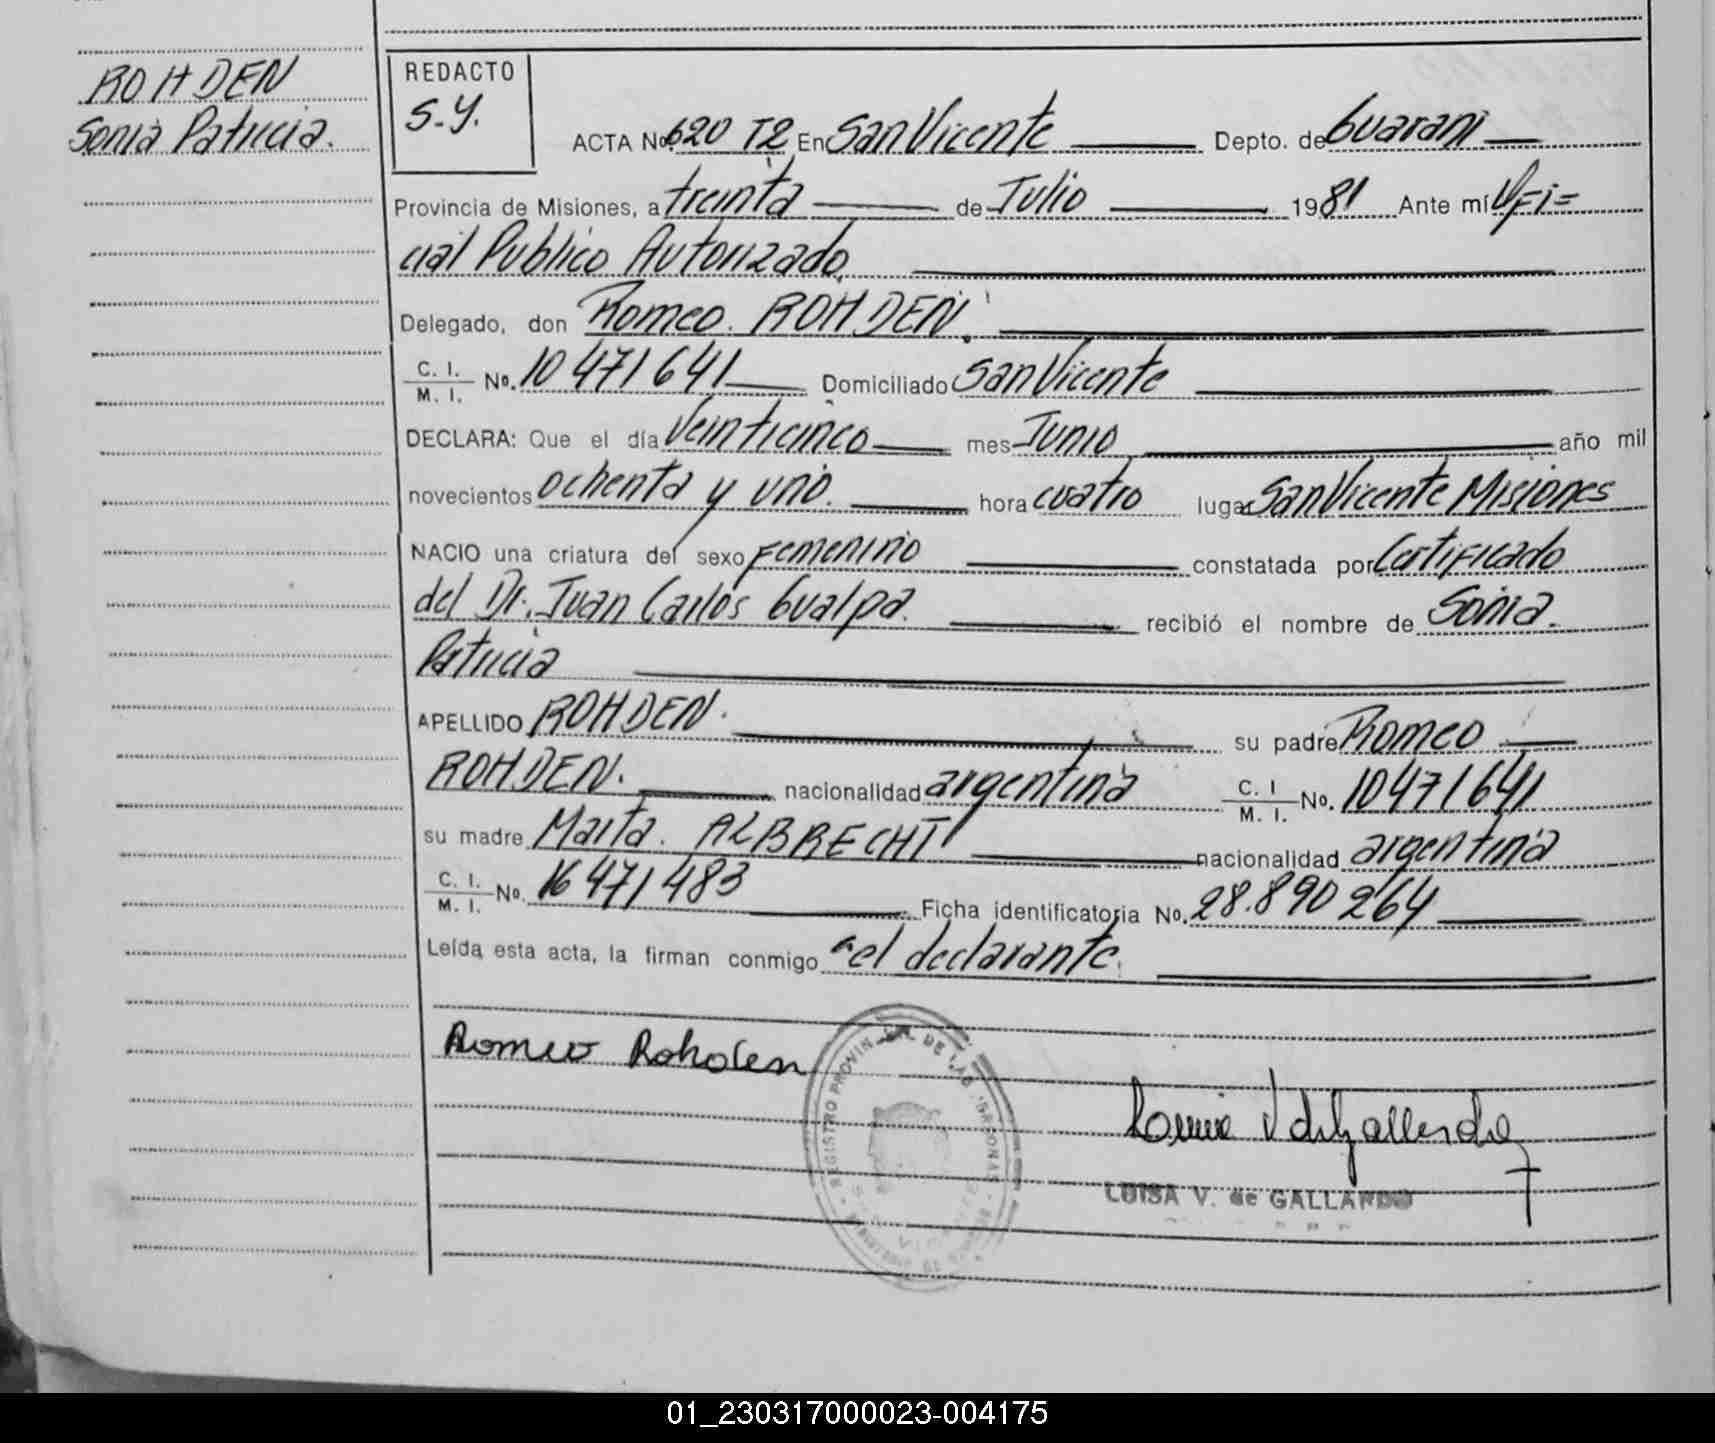 ROHDEN
Sonia Patricia.
REDACTO
S.Y.
ACTA No. 620 T2 En San Vicente Depto. de Guarani
Provincia de Misiones, a treinta de Julio 1981 Ante mí Ofi=
cial Publico Autorizado
Delegado, don Romeo. ROHDEN.
C. I. / M. I. No. 10 471 641 Domiciliado San Vicente
DECLARA: Que el día Veinticinco mes Junio año mil
novecientos ochenta y uno. hora cuatro lugar San Vicente Misiones
NACIO una criatura del sexo Femenino constatada por Certificado
del Dr. Juan Carlos Gualpa. recibió el nombre de Sonia.
Patricia
APELLIDO ROHDEN. su padre Romeo
ROHDEN. nacionalidad argentina C. I / M. I. No. 10471641
su madre Marta. ALBRECHT nacionalidad argentina
C. I. / M. I. No. 16 471 483 Ficha identificatoria No. 28.890 264
Leída esta acta, la firman conmigo el declarante.
Romeo Rohden
REGISTRO PROVINCIAL DE LAS PERSONAS
LUISA V. de GALLARDO
01_230317000023-004175